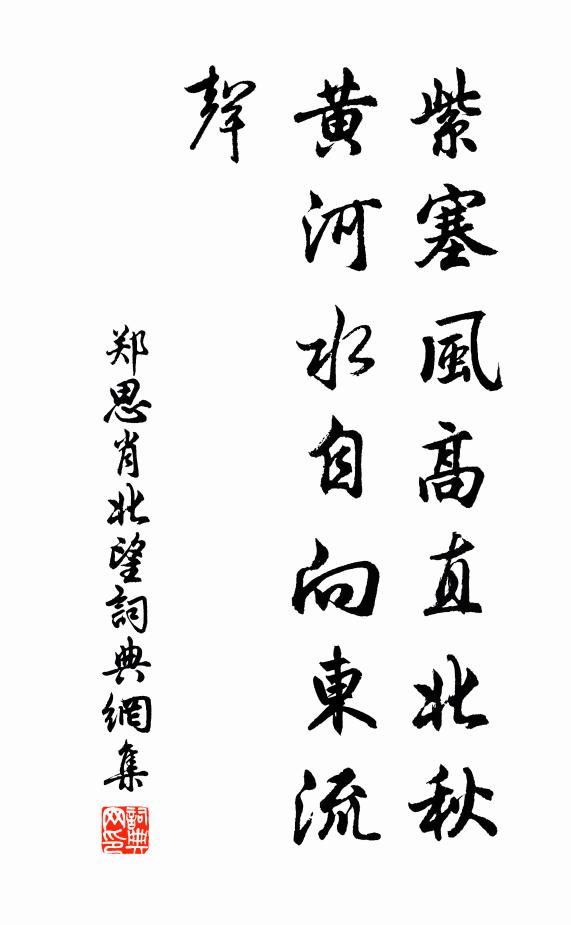 紫塞風高直北秋
黄河水自向東流
聲
郑思肖北望詞典網集
詞典网印